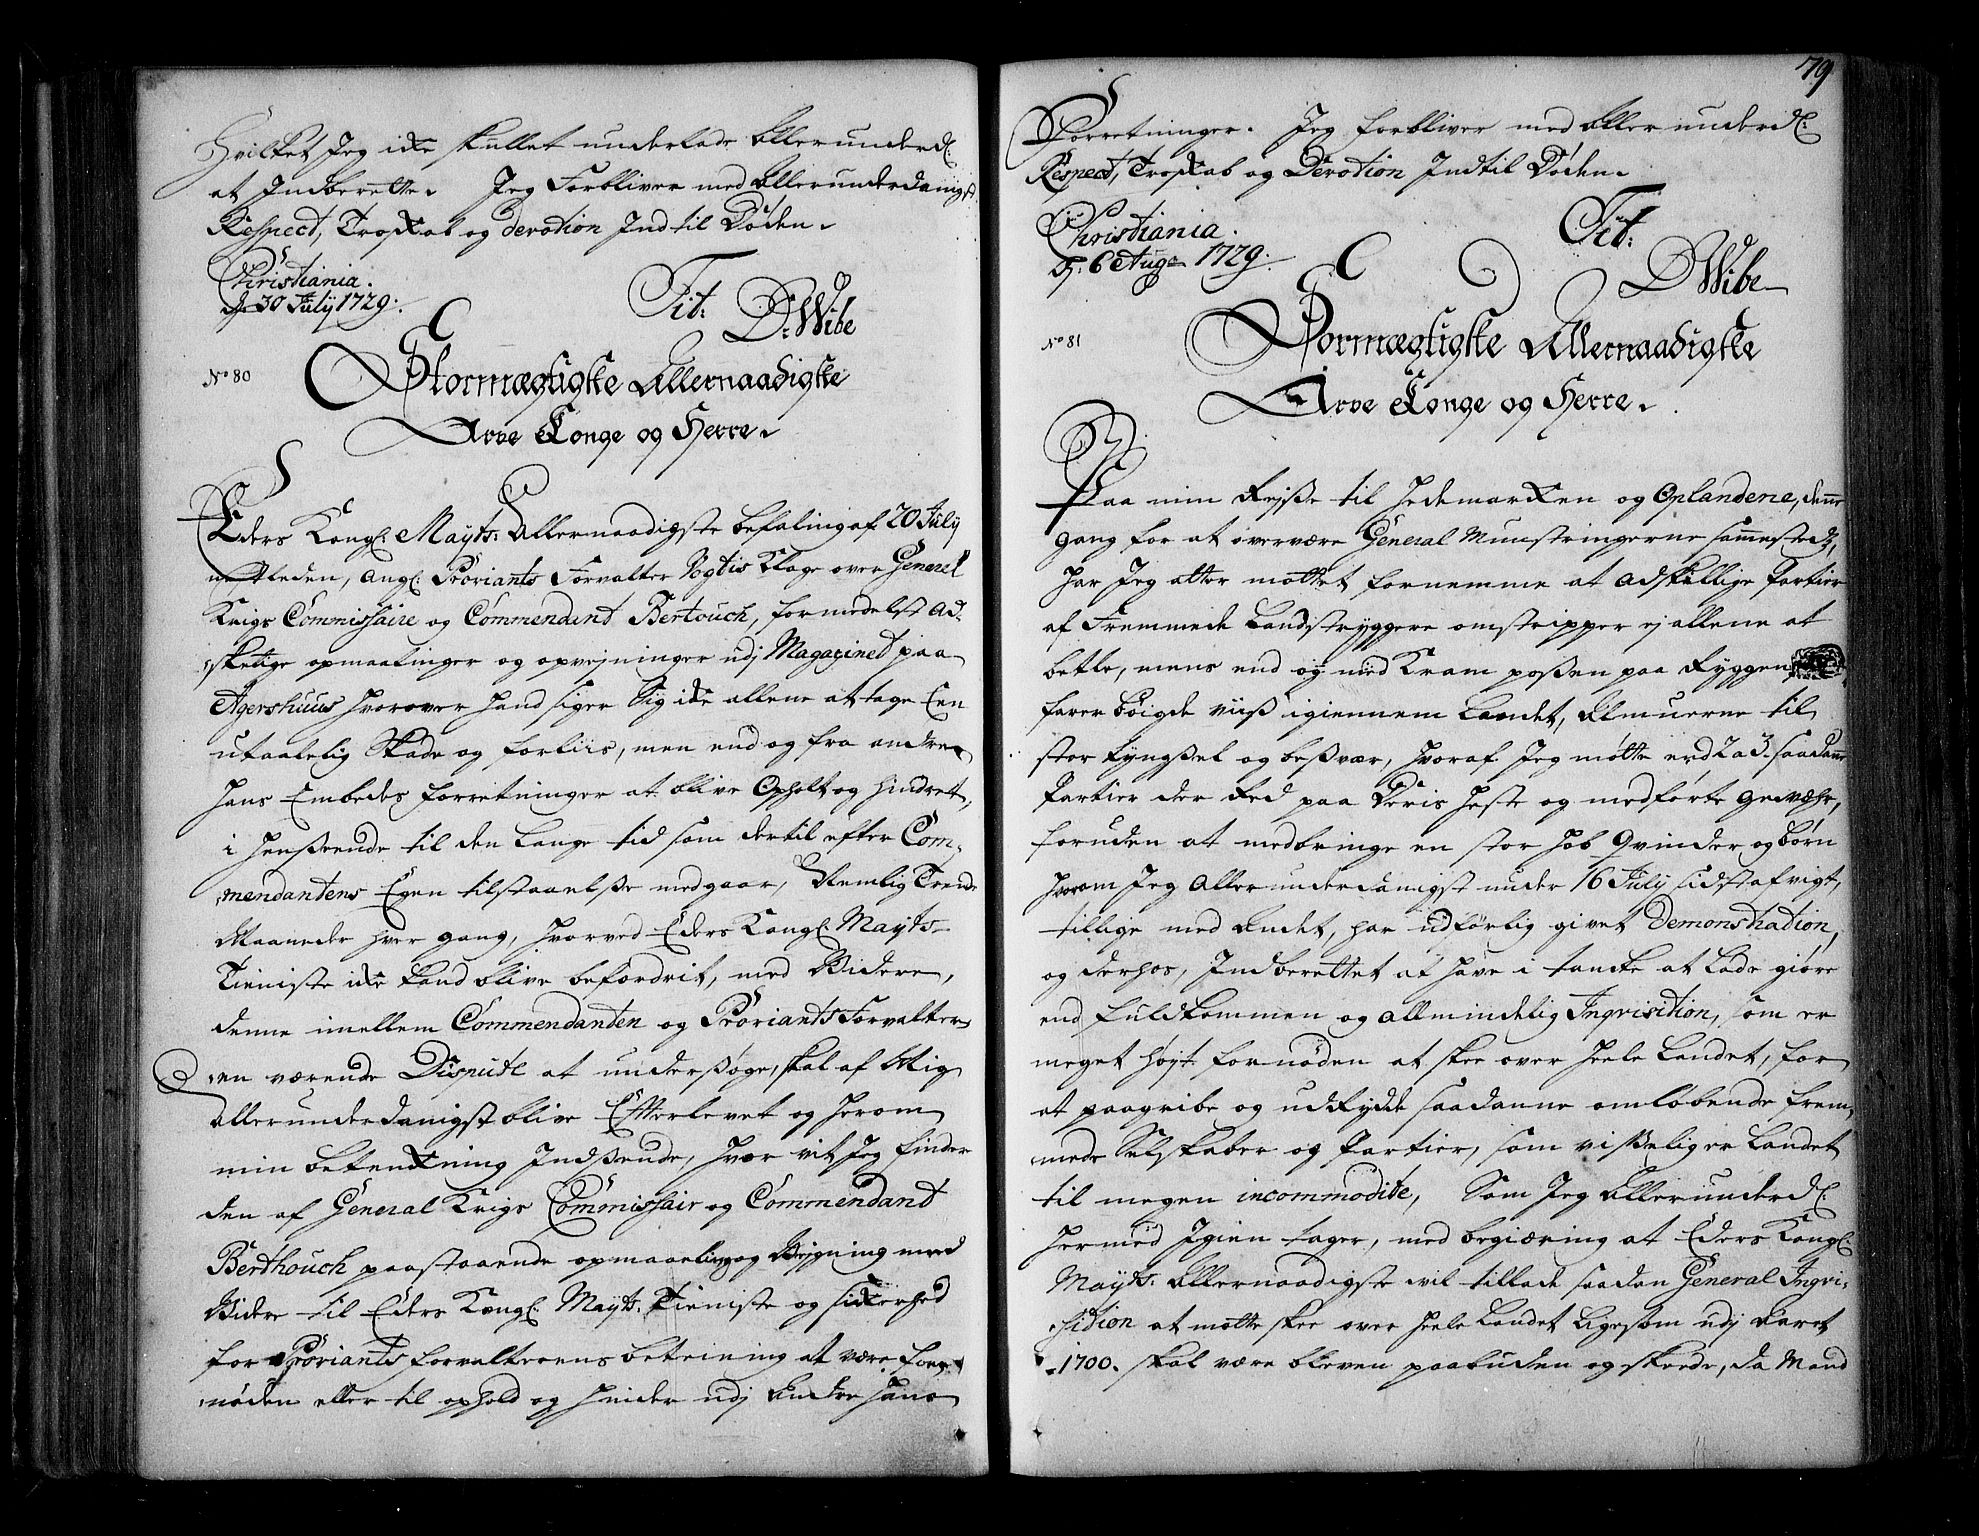 Hvilket Jeg icke skullet underlade Allerunderd:
at Indberette. Jeg Forbliver med Allerunderdanigst
Respect, Troskab og devotion Ind til Døden.
Christiania.
d. 30 July 1729.
Tit:
D. Wibe
No 80
Stormægtigste Allernaadigste
Arve Konge og Herre.
Eders Kongl: Mayts: Allernaadigste befaling af 20 July
nestleden, ang: Proviants Forvalter Vogtis Klage over General
Krigs Commissaire og Commendant Bertouch, formedelst ad-
skelige opmaalinger og opvejninger udj Magazinet paa
Agershuus hvorover hand siger Sig icke allene at tage Een
utaalelig Skade og forliis, men end og fra andre
hans Embedes forretninger at blive Opholt og hindret,
i henseende til den Lange tid som dertil efter Com-
mendantens Egen tilstaaelse medgaar, Nemlig Trende
Maaneder hver gang, hvorved Eders Kongl: Mayts
Tieniste icke kand blive befordrit, med Videre,
denne imellem Commendanten og Proviants Forvalter-
en værende Dispute at undersøge, skal af Mig
allerunderdanigst blive Efterlevet og herom
min betenkning Indsende, hvor vit Jeg finder
den af General Krigs Commissair og Commendant
Berthouch paastaaende opmaaeling og Vejgning med
Videre til Eders Kongl: Mayts: Tieniste og sickerhed
for Proviants forvalterens betiening at være for-
nøden eller til ophold og hinder udj Andre hans
79
Forretninger. Jeg forbliver med Allerunderd:
Respect, Troskab og Devotion Indtil Døden.
Christiania.
d. 6 Aug: 1729.
Tit:
D Wibe
No 81
Stormægtigste Allernaadigste
Arve Konge og Herre.
Paa min Rejse til Hedemarken og Oplandene, denne
gang for at overvære General Munstringerne sammesteds,
har Jeg atter mottet fornemme at adskillige Partier
af Fremmede Landstryggere omstripper ej allene at
betle, mens end og med Kram posen paa Ryggen
farer bøigde viis igiennem Landet, Almuerne til
stor tyngsel og besvær, hvoraf Jeg møtte end 2 a 3 saadanne
Partier der Red paa deris heste og medførte gevæhr,
foruden at medbringe en stor hob Qvinder og børn
hvorom Jeg Allerunderdanigst under 16 July sidst afvigt,
tillige med Andet, har udførlig givet Demonstration,
og derhos, Indberettet at have i tancke at lade giøre
end fuldkommen og allmindelig Inqvisition, som er
meget høyt fornøden at skee over heele Landet, for
at paagribe og udrydde saadanne omløbende frem-
mede Selskaber og Partier, som visselig er Landet
til megen incommodite, Som Jeg Allerunderd:
hermed Igien tager, med begiæring at Eders Kongl:
Mayts: Allernaadigste vil tillade saadan General Inqvi-
sition at motte skee over heele Landet Ligesom udj Aaret
1700. skal være bleven paabuden og skeede, da Mand